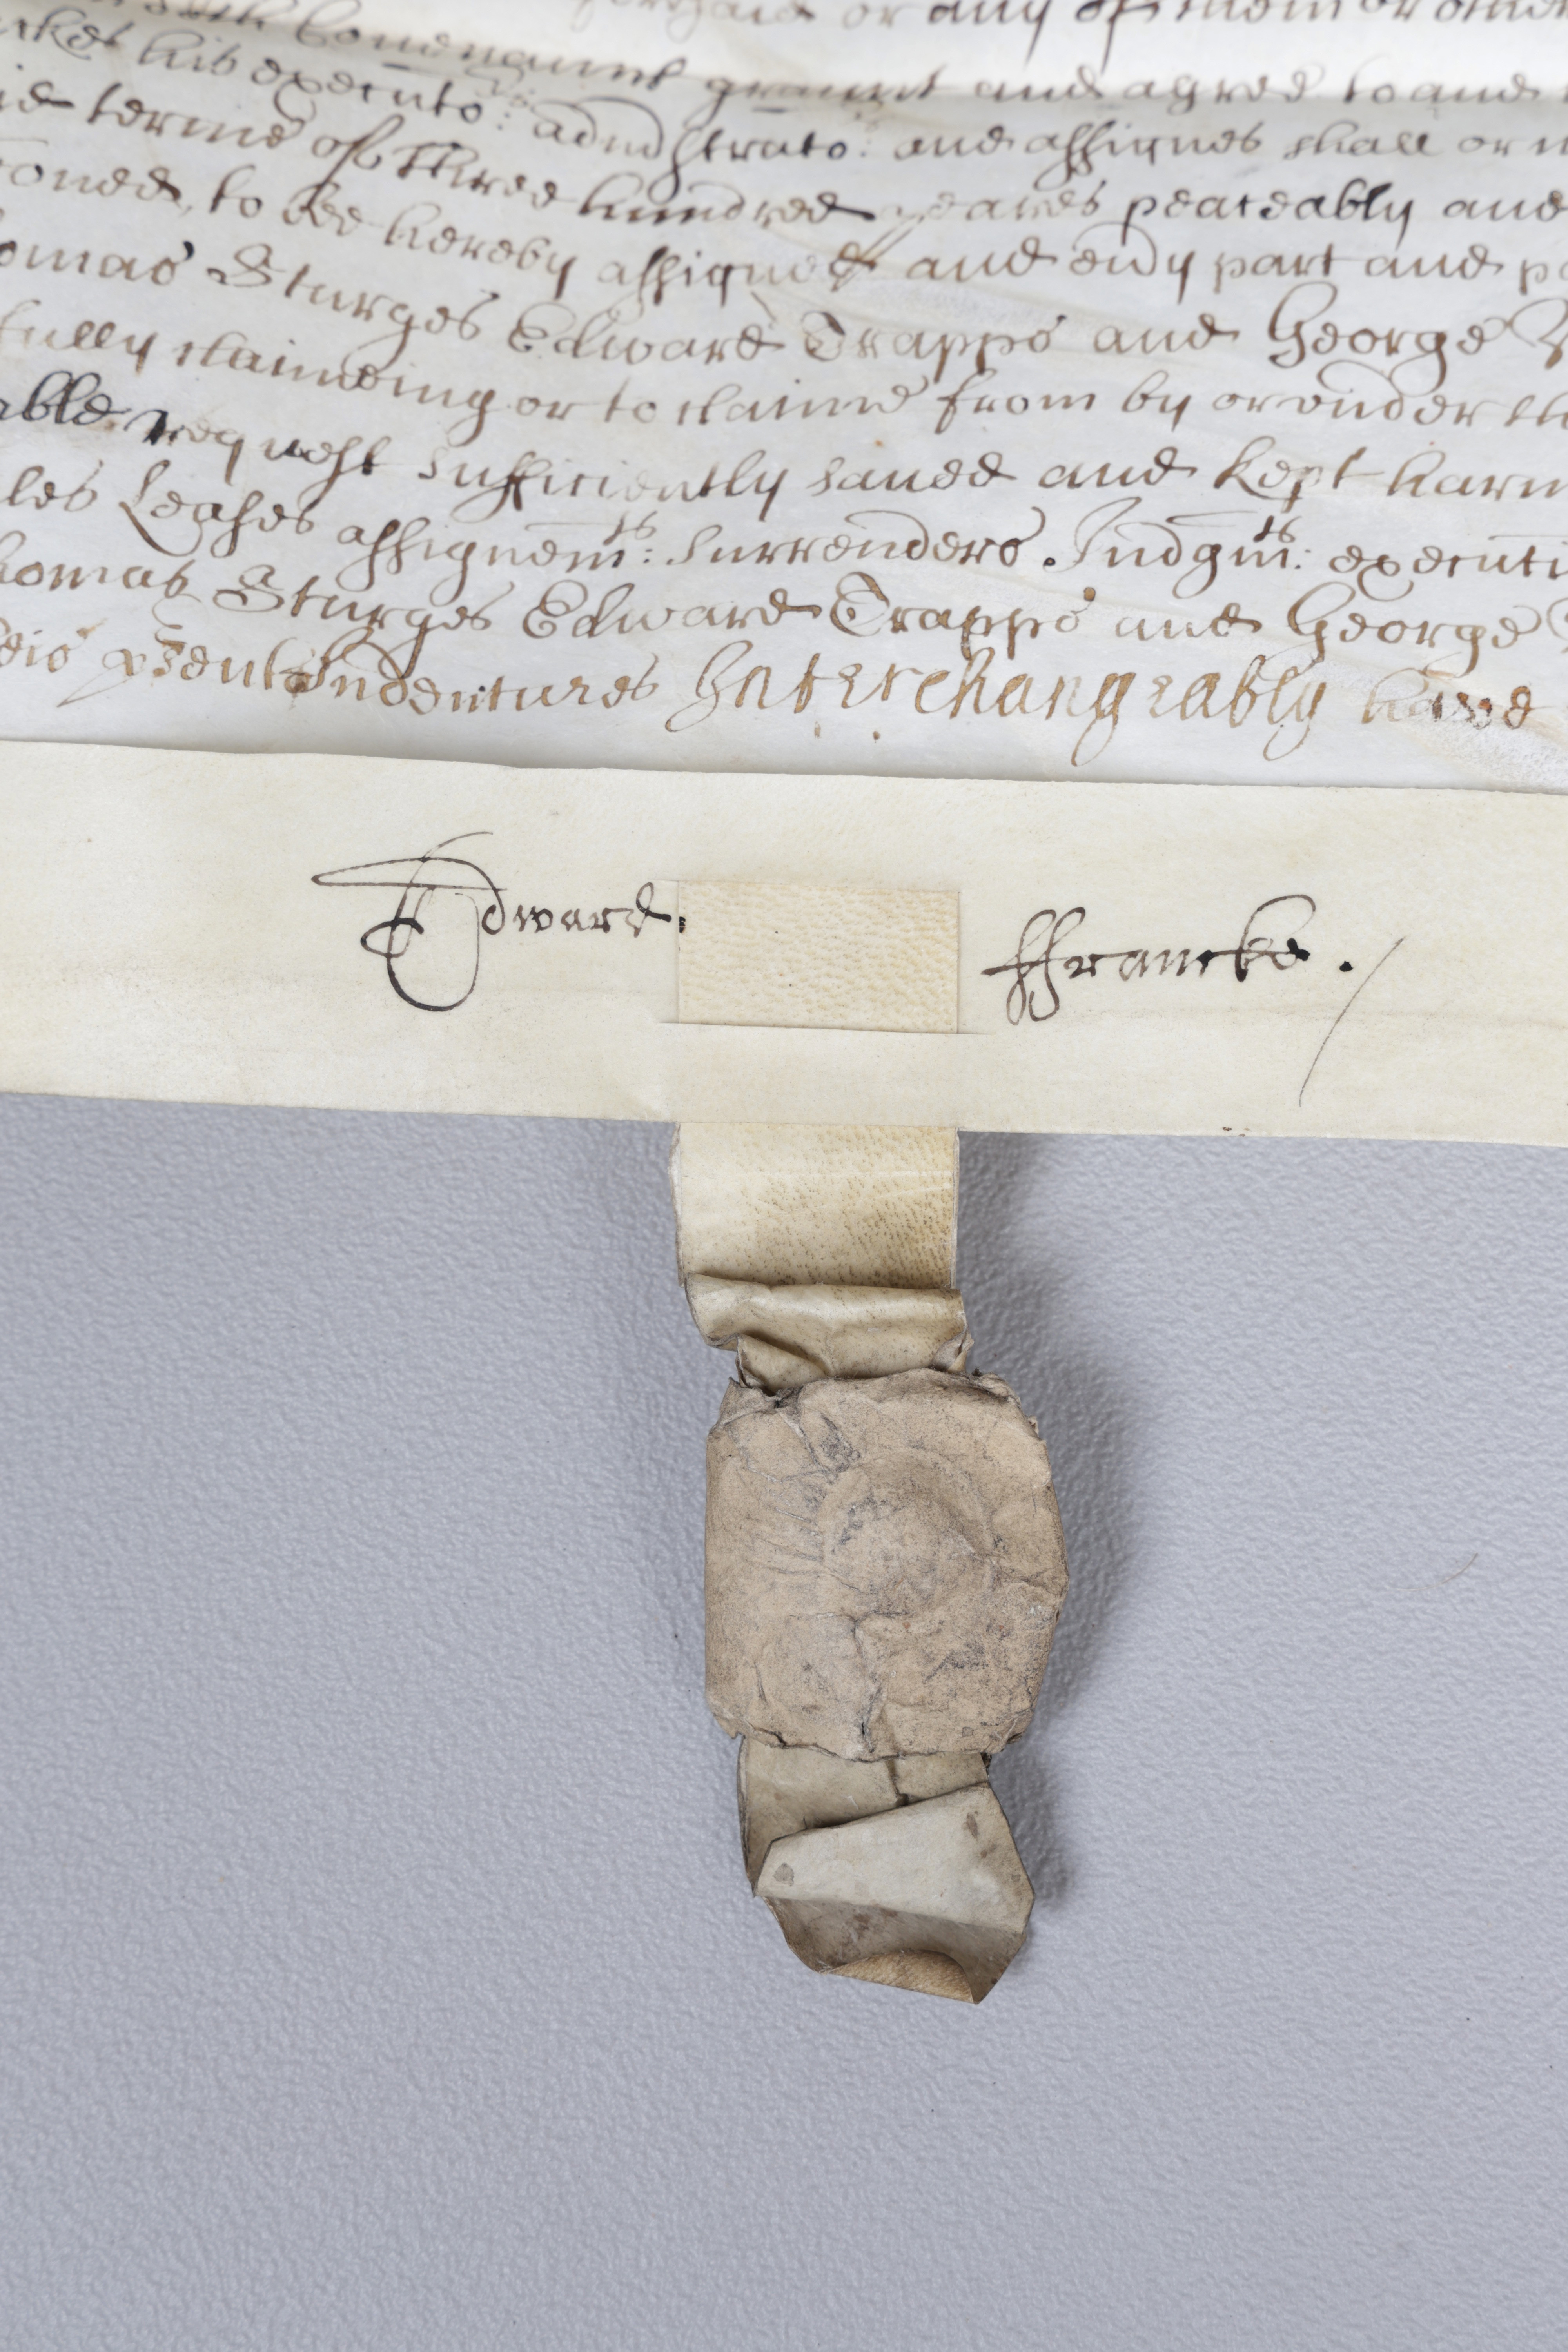 or any of them or other
Covenaunt graunt and agree to and
his executo:rs admistrato:rs and assignes shall or m
terme of Three hundred yeares peaceably and
to bee hereby assigned and eu̅y part and p
omas Sturges Edward Trapps and George
fully claimeing or to claime from by or vnder th
able request sufficiently saued and kept harm
les Leases assignem̅ts: surrenders Judgm̅ts: executi
homas Sturges Edward Trapps and George
psent Indentures Interchangeably have
Edward. ffrancke. /